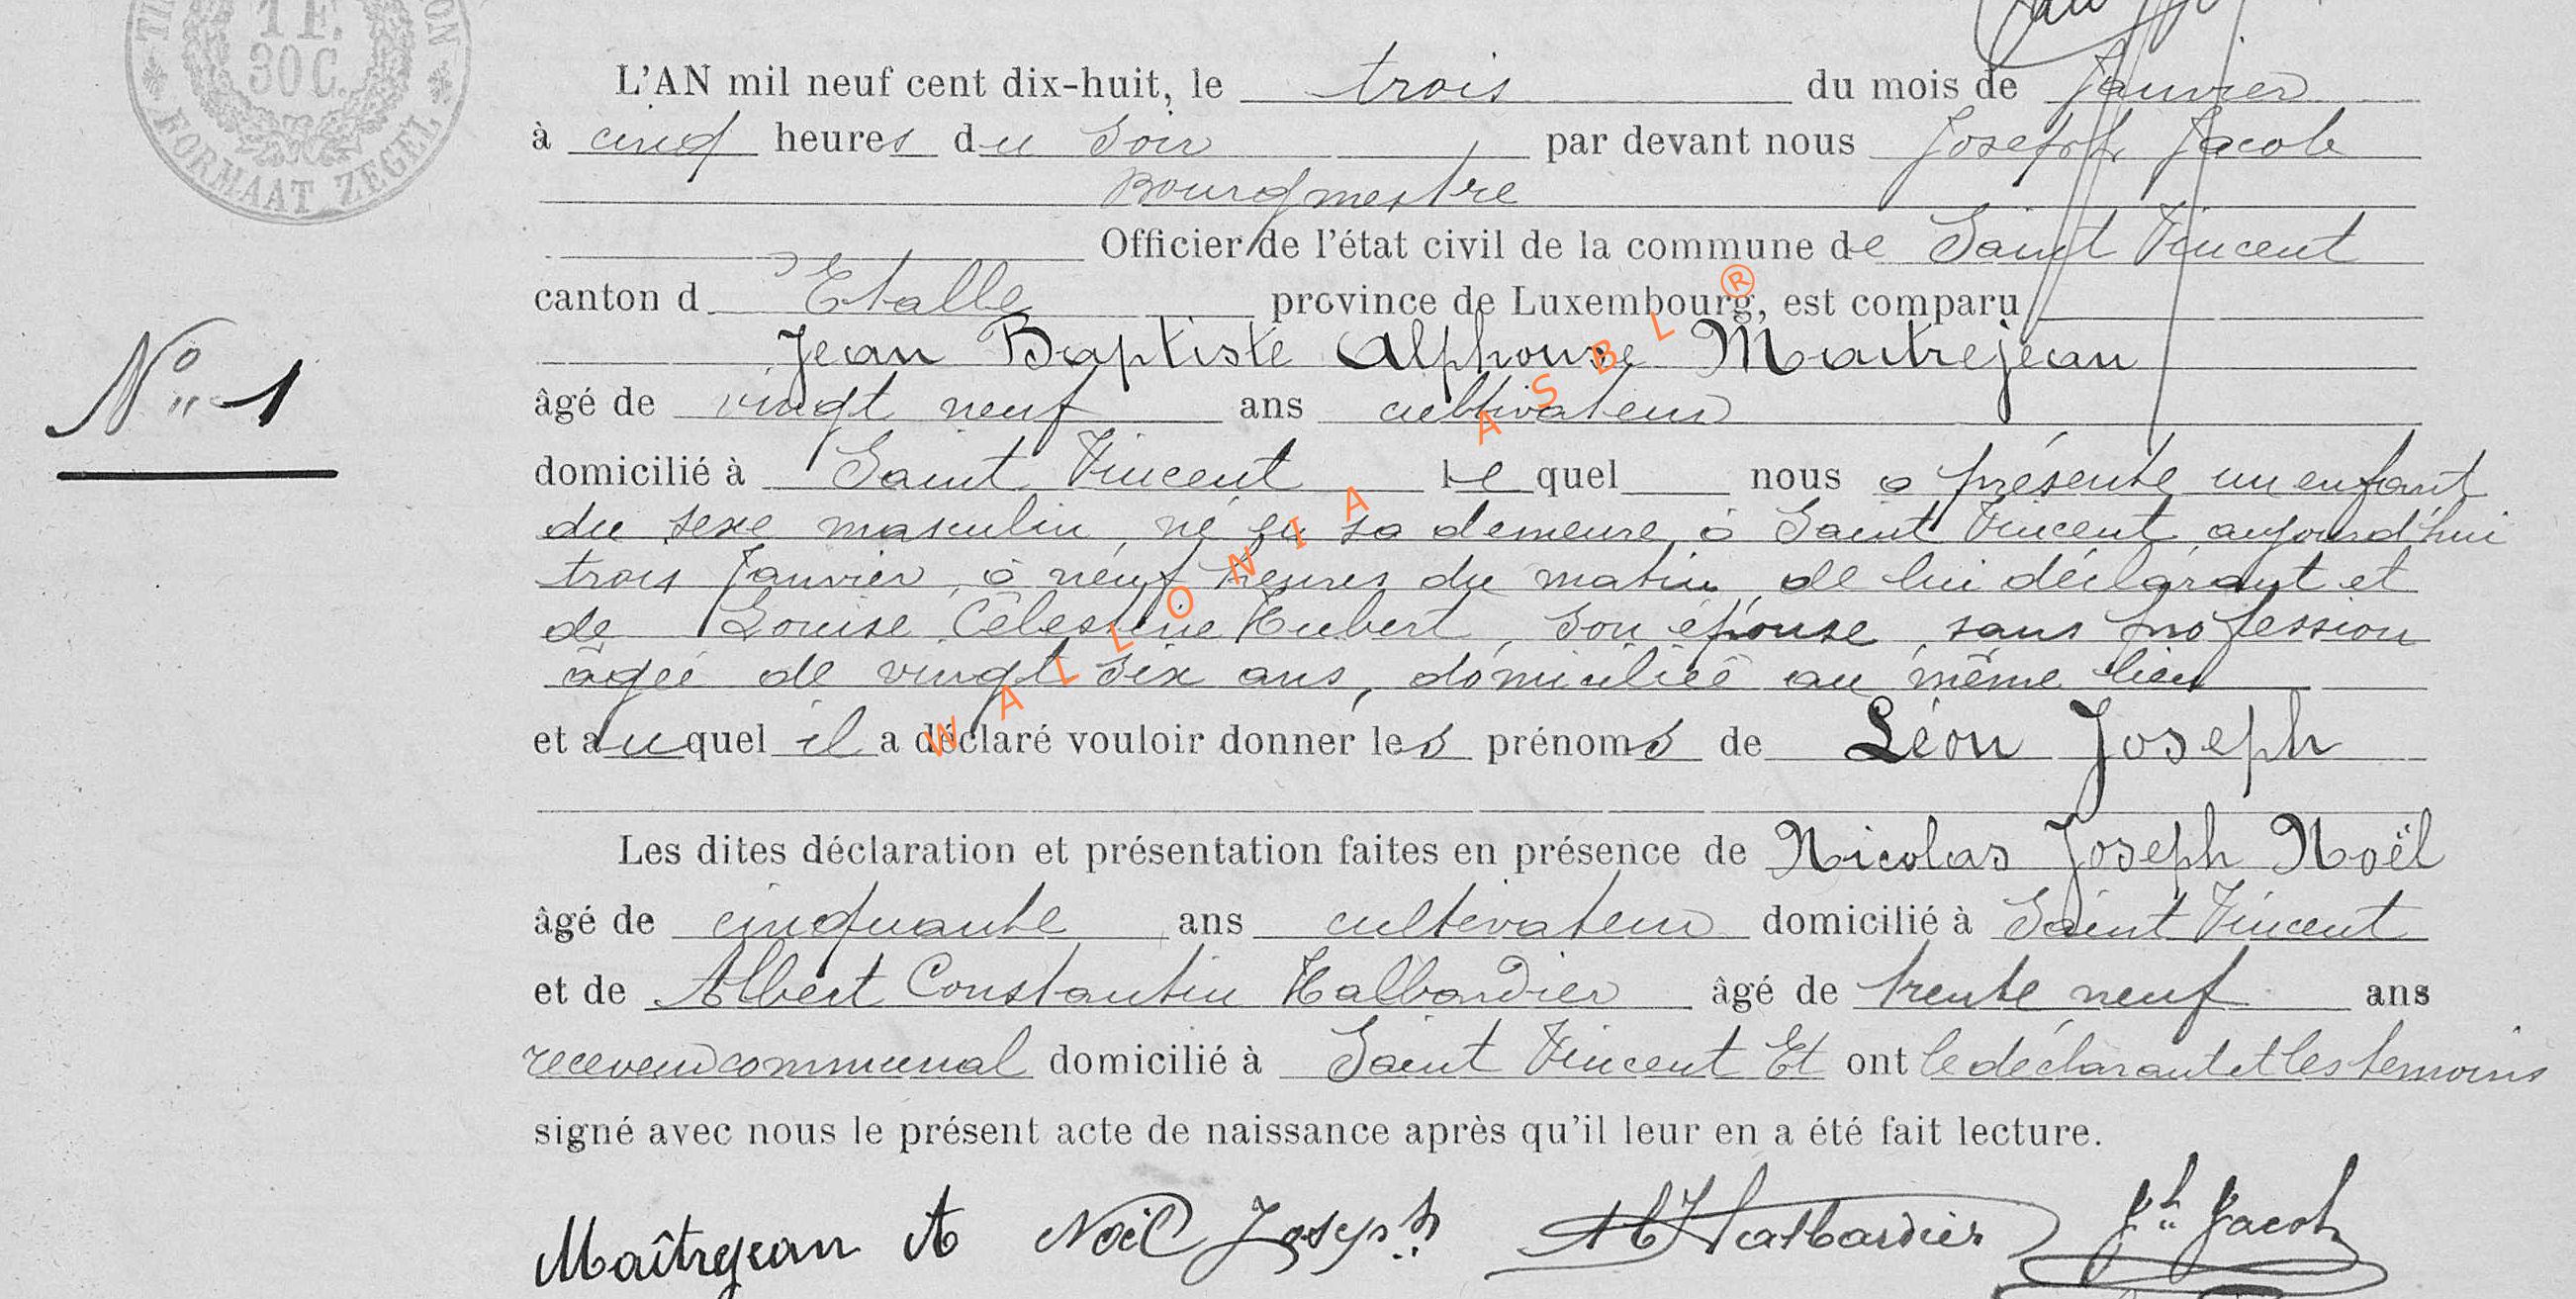 1 F.
30 C.
FORMAAT ZEGEL
L'AN mil neuf cent dix-huit, le trois du mois de Janvier
à cinq heures du soir par devant nous Joseph Jacob
Bourgmestre
Officier de l'état civil de la commune de Saint Vincent
canton d Etalle province de Luxembourg, est comparu
Jean Baptiste Alphonse Maitrejean
No 1
âgé de vingt neuf ans cultivateur
domicilié à Saint Vincent lequel nous a présenté un enfant
du sexe masculin, né en sa demeure à Saint Vincent aujourd'hui
trois Janvier, à neuf heures du matin, de lui déclarant et
de Louise Célestine Hubert, son épouse, sans profession
âgée de vingt six ans, domiciliée au même lieu
et auquel il a déclaré vouloir donner les prénoms de Léon Joseph
Les dites déclaration et présentation faites en présence de Nicolas Joseph Noël
âgé de cinquante ans cultivateur domicilié à Saint Vincent
et de Albert Constantin Halbardier âgé de trente neuf ans
receveur communal domicilié à Saint Vincent Et ont le déclarant et les témoins
signé avec nous le présent acte de naissance après qu'il leur en a été fait lecture.
Maîtrejean A Noël Joseph A Halbardier Jh Jacob
WALLONIA ASBL ®